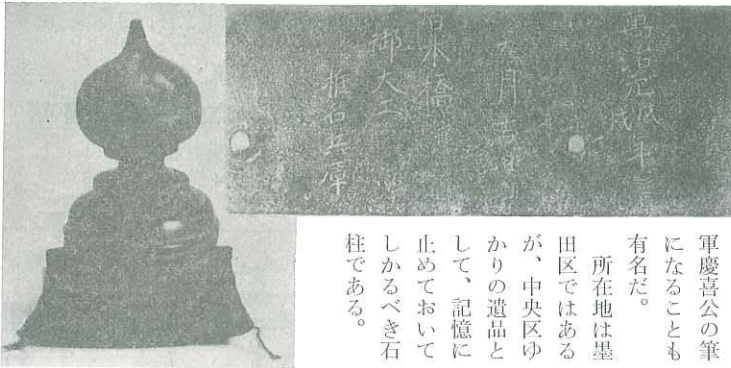 萬治元戊戌年
九月吉日
日本橋
御大工
椎名兵庫
軍慶喜公の筆
になることも
有名だ。
　所在地は墨
田区ではある
が、中央区ゆ
かりの遺品と
して、記憶に
止めておいて
しかるべき石
柱である。